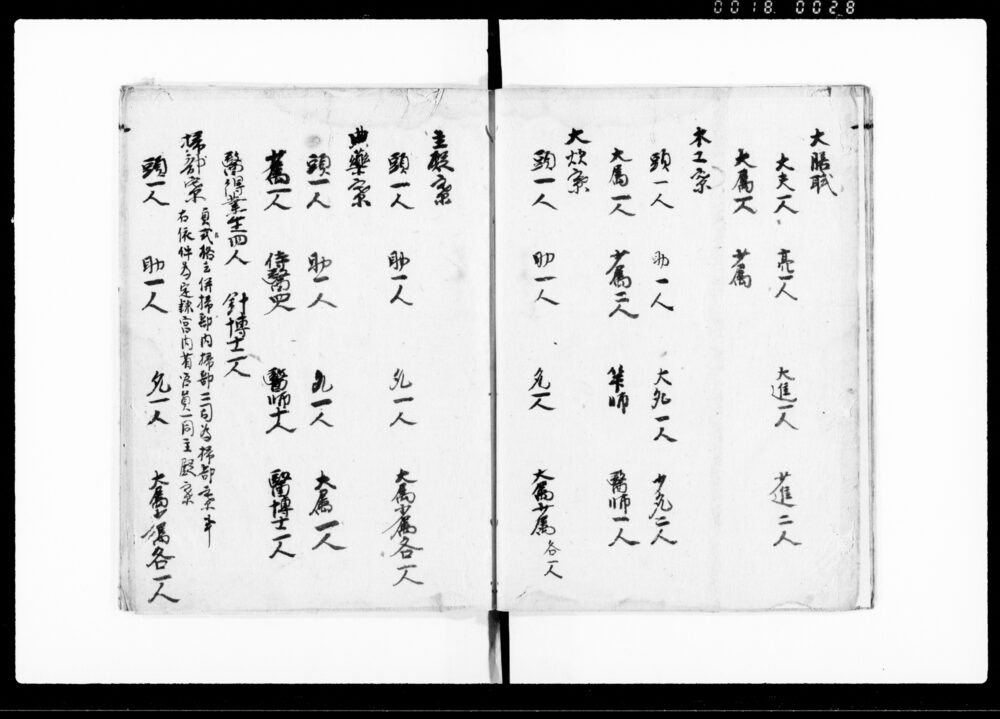 0018 0028
大膳職
大夫一人 亮一人 大進一人 少進二人
大属一人 少属
木工寮
頭一人 助一人 大允一人 少允二人
大属一人 少属二人 筭師 醫師一人
大炊寮
頭一人 助一人 允一人 大属少属各一人
主殿寮
頭一人 助一人 允一人 大属少属各一人
典藥寮
頭一人 助一人 允一人 大属一人
属一人 侍醫四人 醫師十人 醫博士一人
醫得業生四人 針博士一人
掃部寮
右依件為定隷宮内省官員一同主殿寮
頭一人 助一人 允一人 大属少属各一人